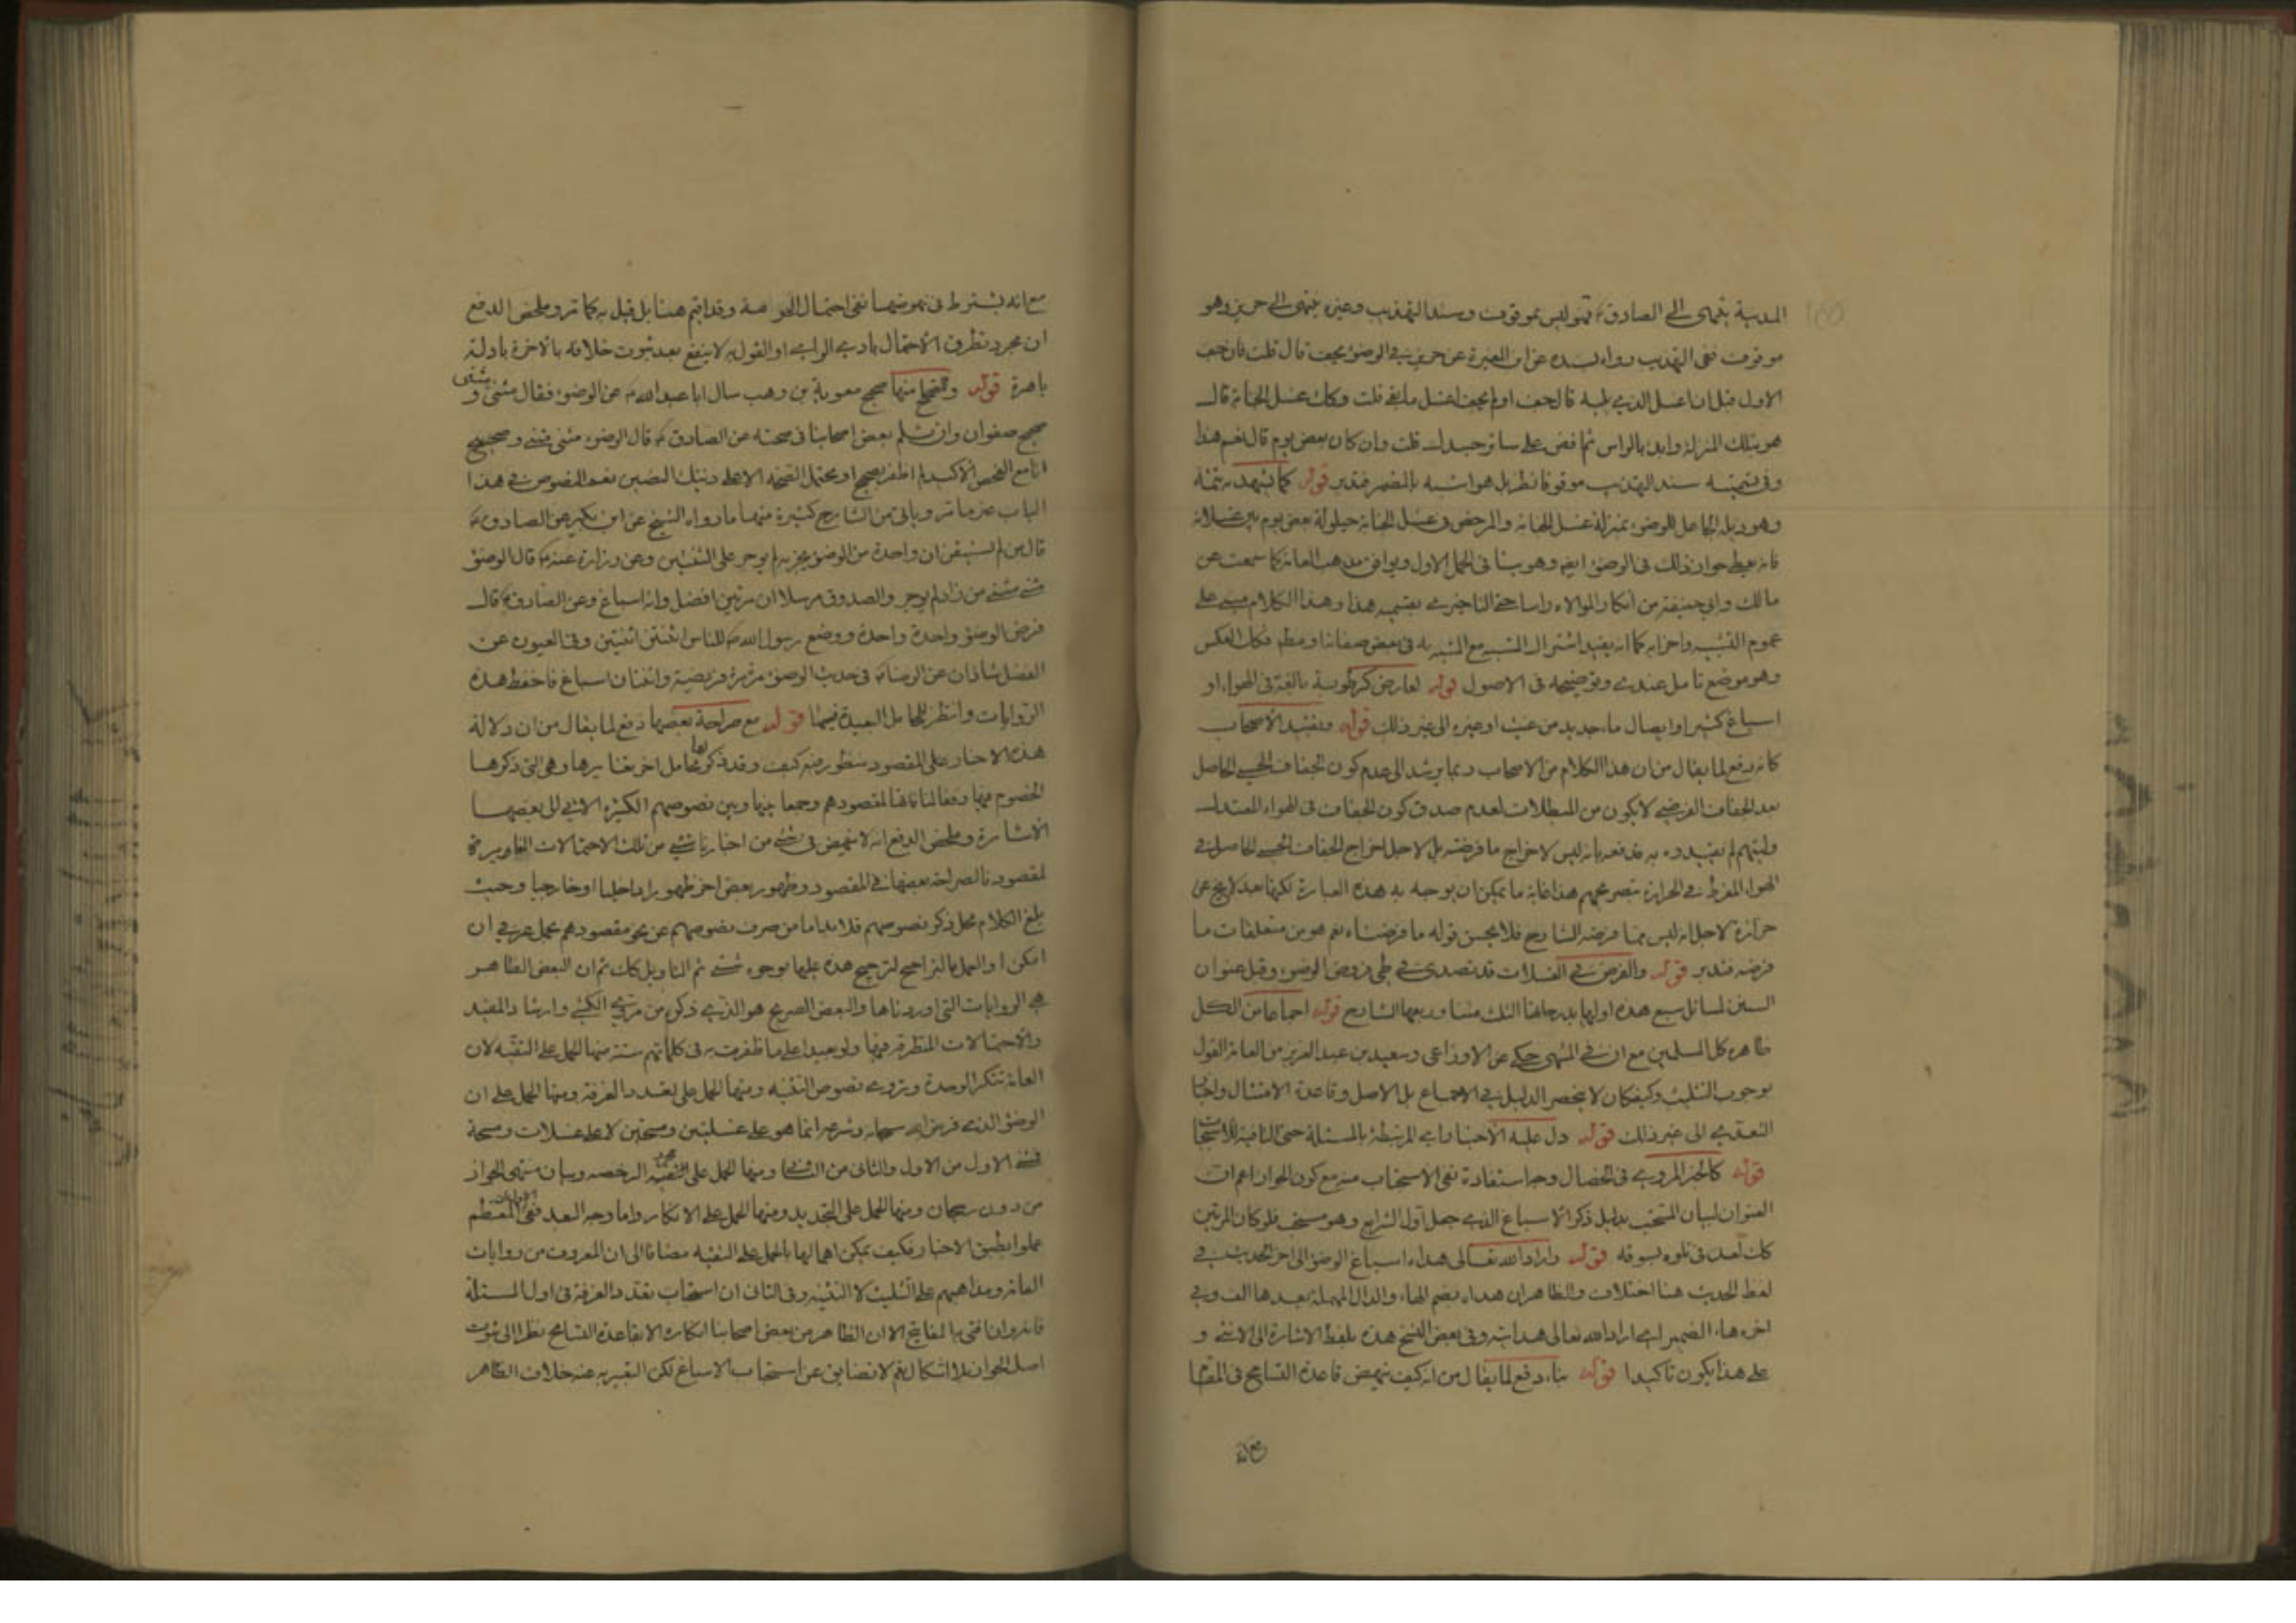 المدينة ينتهى الى الصادق ع فهو ليس بموقوف وسند التهذيب وغيره ينتهى الى حريز وهو
موقوف ففى التهذيب رواه بسنده عن ابن المغيرة عن حريز فى الوضوء يجف قال قلت فان جف
الاول قبل ان اغسل الذى يليه قال جف او لم يجف اغسل ما بقى قلت وكك غسل الجنابة قال
هو بتلك المنزلة وابدء بالراس ثم افض على سائر جسدك قلت وان كان بعض يوم قال نعم هذا
وفى تسميته سند التهذيب موقوفا نظر بل هو اشبه بالمضمر فتدبر قوله كما يشهد به تتمته
وهو ذيله الجاعل للوضوء بمنزلة غسل الجنابة والمرخص فى غسل الجنابة حيلولة بعض يوم بين غسلاته
فانه يعطى جواز ذلك فى الوضوء ايضا وهو ينافى الحمل الاول ويوافق مذهب العامة كما سمعت عن
مالك وابى حنيفة من انكار الموالاة راسا حتى التاخير بقسميه هذا وهذا الكلام مبنى على
عموم التشبيه واجزائه كما انه يفيد اشتراك المشبه مع المشبه به فى بعض صفاته او مطلقا فكك العكس
وهو موضع تامل عندى وتوضيحه فى الاصول قوله لعارض كرطوبة بالغة فى الهواء او
اسباغ كثير او ايصال ماء جديد من غيث او غيره الى غير ذلك قوله وتقييد الاصحاب
كانه دفع لما يقال من ان هذا الكلام من الاصحاب ربما يرشد الى عدم كون الجفاف الحسى الحاصل
بعد الجفاف الفرضى لا يكون من المبطلات لعدم صدق كون الجفاف فى الهواء المعتدل
وليتهم لم يقيدوه به فدفعه بانه ليس لاخراج ما فرضته بل لاجل اخراج الجفاف الحسى الحاصل فى
الهواء المفرط فى الحرارة بتصريحهم هذا غاية ما يمكن ان يوجه به هذه العبارة لكنها بعد لا يخ عن
حزازة لاجل انه ليس مما فرضه الشارح فلا يحسن قوله ما فرضناه نعم هو من متعلقات ما
فرضه فتدبر قوله والفرض فى الغسلات قد تصدى فى طى فروض الوضوء وقبل عنوان
السنن لمسائل سبع هذه اولها بدرجاتها الثلث متنا وربعها الشارح قوله اجماعا من الكل
ظاهره كل المسلمين مع ان فى المنتهى حكى عن الاوزاعى وسعيد بن عبد العزيز من العامة القول
بوجوب التثليث وكيف كان لا ينحصر الدليل فى الاجماع بل الاصل وقاعدة الامتثال واخبار
التعدى الى غير ذلك قوله دل عليه الاخبار اى المرتبطة بالمسئلة حتى النافية للاستحباب
قوله كالخبر المروى فى الخصال وجه استفادة نفى الاستحباب منه مع كون الجواز اعم ان
العنوان لبيان المستحب بدليل ذكر الاسباغ الذى جعل اول الشرايع وهو مستحب فلو كان المرتين
كك لعد فى تلوه بسوقه قوله واراد الله تعالى هداه اسباغ الوضوء الى اخر الحديث فى
لفظ الحديث هنا اختلاف والظاهر ان هداه بضم الهاء والدال المهملة بعدها الف وفى
اخره هاء الضمير اى اراد الله تعالى هدايته وفى بعض النسخ هذه بلفظ الاشارة الى الانثى و
على هذا يكون تاكيدا قوله بناء دفع لما يقال من انه كيف ينهض قاعدة التسامح فى المقام
مع انه
مع انه يشترط فى نهوضها نفى احتمال الحرمة وقد اقيم هنا بل قيل به كما تر وملخص الدفع
ان مجرد تطرق الاحتمال بادى الراى او القول به لا ينفع بعد ثبوت خلافه بالاخرة بادلة
باهرة قوله والصحاح منها صحيح معوية بن وهب سال ابا عبد الله ع عن الوضوء فقال مثنى و مثنى
صحيح صفوان وان تسلم بعض اصحابنا فى صحته عن الصادق ع قال الوضوء مثنى مثنى وصحيح
انا مع الفحص الاكيد لم اظفر بصحيح او يحتمل الصحة الا على ذينك النصين نعم النصوص فى هذا
الباب غير ما تر وياتى من الشارح كثيرة منها ما رواه الشيخ عن ابن بكير عن الصادق ع
قال من لم يستيقن ان واحدة من الوضوء يجزيه لم يوجر على الثنتين وعن زرارة عنه ع قال الوضوء
مثنى مثنى من زاد لم يوجر والصدوق مرسلا ان مرتين افضل وانه اسباغ وعن الصادق ع قال
فرض الوضوء واحدة واحدة ووضع رسول الله ص للناس اثنتين اثنتين وفى العيون عن
الفضل بن شاذان عن الرضا ع فى حديث الوضوء مرة مرة فريضة واثنتان اسباغ فاحفظ هذه
الروايات وانتظر للمحامل البعيدة فيها قوله مع صراحة بعضها دفع لما يقال من ان دلالة
هذه الاخبار على المقصود منظور فيه كيف وقد ذكر لها محامل اخر تغايرها وهى التى ذكرها
الخصوم فيها دفعا لمنافاتها لمقصودهم وجمعا بينها وبين نصوصهم الكثيرة الاتى الى بعضها
الاشارة وملخص الدفع انه لا ينهض فى شىء من اخبارنا شىء من تلك الاحتمالات المغايرة
لمقصودنا لصراحة بعضها فى المقصود وظهور بعض اخر ظهورا داخليا او خارجيا وحيث
بلغ الكلام محل ذكر نصوصهم فلا بد اما من صرف نصوصهم عن نحو مقصودهم بحمل عرفى ان
امكن او العمل بالتراجيح لترجيح هذه عليها بوجوه شتى ثم التاويل كك ثم ان البعض الظاهر
هى الروايات التى اوردناها والبعض الصريح هو الذى ذكره من مروى الكشى وارشاد المفيد
والاحتمالات المتطرقة فيها ولو بعيدا على ما ظفرت به فى كلماتهم ستة منها الحمل على التقية لان
العامة تنكر الوحدة وتروى نصوص التثنية ومنها الحمل على تعدد الغرفة ومنها الحمل على ان
الوضوء الذى فرض الله سبحانه وشرعه انما هو على غسلتين ومسحتين لا على غسلات ومسحة
فمثنى الاول من الاول والثانى من الثانى ومنها الحمل على الرخصه وبيان منتهى الجواز
من دون رجحان ومنها الحمل على التجديد ومنها الحمل على الانكار واما وجه البعد ففى المعظم
عملوا بطبق الاخبار فكيف يمكن اهمالها بالحمل على التقية مضافا الى ان المعروف من روايات
العامة ومذاهبهم على التثليث لا التثنية وفى الثانى ان استحباب تعدد الغرفة فى اول المسئلة
فانه وان افتى به المفاتيح الا ان الظاهر من بعض اصحابنا انكاره الا بقاعدة التسامح نظرا الى ثبوت
اصل الجواز بلا اشكال نعم لا تضايق عن استحباب الاسباغ لكن التعبير به عنه خلاف الظاهر